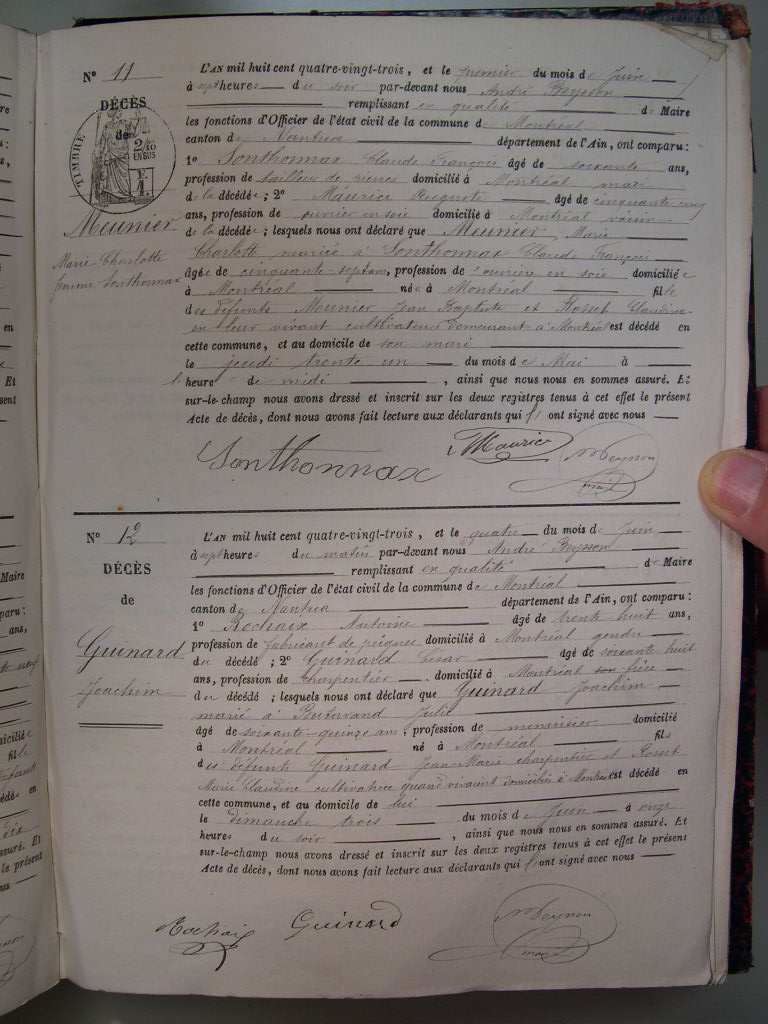 N° 11 L'AN mil huit cent quatre-vingt-trois, et le premier du mois de Juin
à sept heures du soir par-devant nous André Beysson
DÉCÈS remplissant en qualité de Maire
de les fonctions d'Officier de l'état civil de la commune de Montréal
TIMBRE 2/10 EN SUS canton de Nantua département de l'Ain, ont comparu:
1° Sonthonnax Claude François âgé de soixante ans,
profession de tailleur de pierres domicilié à Montréal mari
de la décédée; 2° Maurice Auguste âgé de cinquante cinq
Meunier ans, profession de ouvrier en soie domicilié à Montréal voisin
de la décédée; lesquels nous ont déclaré que Meunier Marie
Marie Charlotte Charlotte mariée à Sonthonnax Claude François
femme Sonthonnax âgée de cinquante sept ans, profession de ouvrière en soie domiciliée
à Montréal née à Montréal fille
des défunts Meunier Jean Baptiste et Rosset Claudine
en leur vivant cultivateurs demeurant à Montréal est décédé en
cette commune, et au domicile de son mari
le jeudi trente un du mois de Mai à
l'heure de midi, ainsi que nous nous en sommes assuré. Et
sur-le-champ nous avons dressé et inscrit sur les deux registres tenus à cet effet le présent
Acte de décès, dont nous avons fait lecture aux déclarants qui ont signé avec nous
Sonthonnax Maurice
N° 12 L'AN mil huit cent quatre-vingt-trois, et le quatre du mois de Juin
à sept heures du matin par-devant nous André Beysson
DÉCÈS remplissant en qualité de Maire
de les fonctions d'Officier de l'état civil de la commune de Montréal
canton de Nantua département de l'Ain, ont comparu:
1° Rochaix Antoine âgé de trente huit ans,
Guinard profession de fabricant de peignes domicilié à Montréal gendre
du décédé; 2° Guinard César âgé de soixante huit
Joachim ans, profession de charpentier domicilié à Montréal son frère
du décédé; lesquels nous ont déclaré que Guinard Joachim
marié à Julie
âgé de soixante-quinze ans, profession de menuisier domicilié
à Montréal né à Montréal fils
des défunts Guinard Jean Marie charpentier et Rosset
Marie Claudine cultivatrice quand vivaient domiciliés à Montréal est décédé en
cette commune, et au domicile de lui
le dimanche trois du mois de Juin à onze
heures du soir, ainsi que nous nous en sommes assuré. Et
sur-le-champ nous avons dressé et inscrit sur les deux registres tenus à cet effet le présent
Acte de décès, dont nous avons fait lecture aux déclarants qui ont signé avec nous
Rochaix Guinard